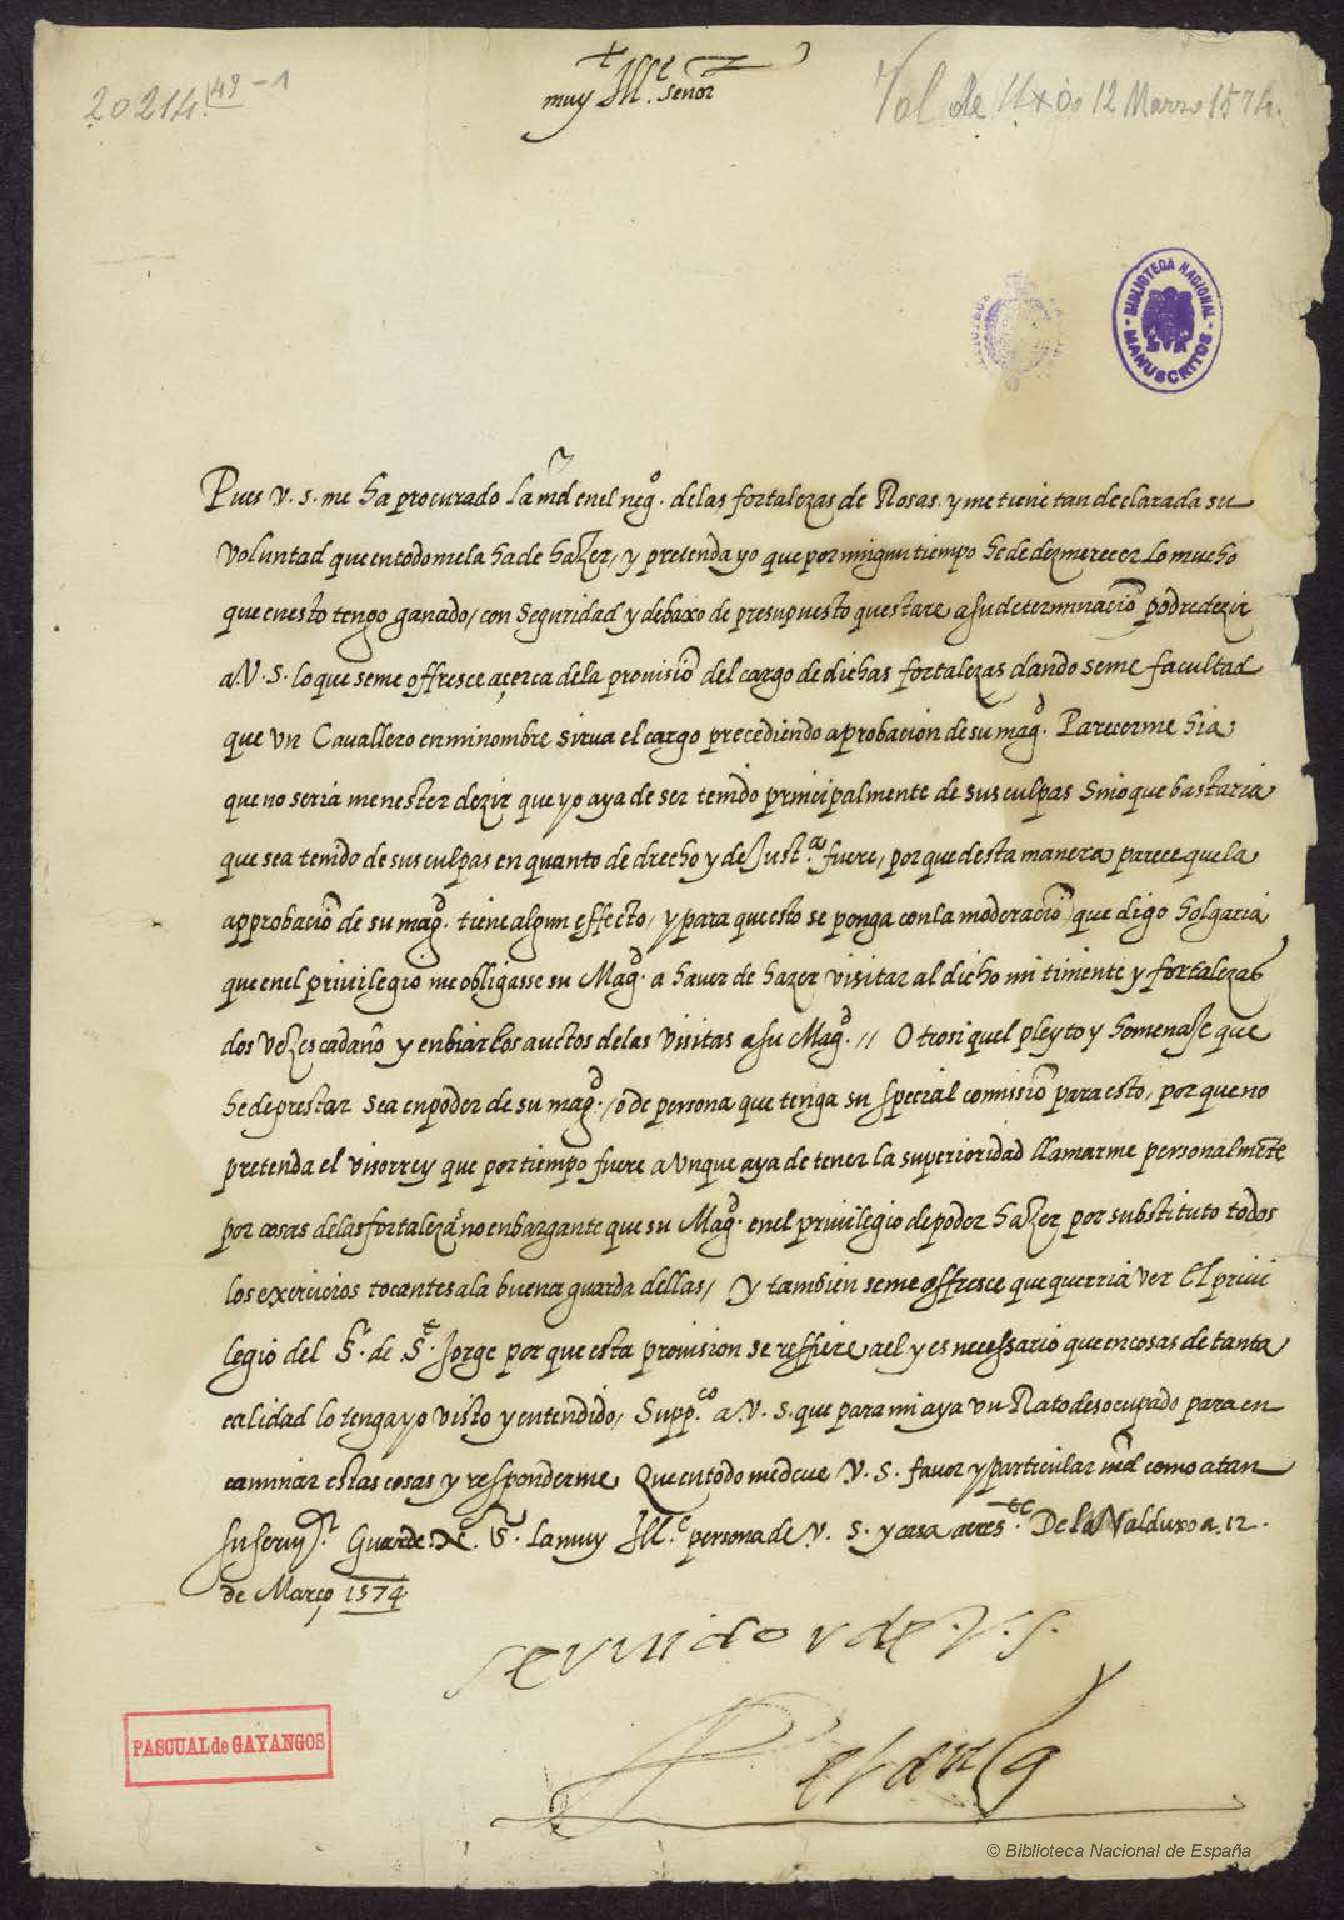 20214 49-1
Val de Uxó 12 Marzo 1574.
muy Ill.e señor
BIBLIOTECA NACIONAL
MANUSCRITOS
Pues v. s. me ha procurado la md enel nego. delas fortalezas de Rosas. y me tiene tan declarada su
voluntad que en todo mela ha de hazer, y pretenda yo que por ningun tiempo he de dezmerecer lo mucho
que en esto tengo ganado, con seguridad y debaxo de presupuesto questare a su determinació podre dezir
a V. S. lo que seme offresce açerca dela provisió del cargo de dichas fortalezas dando seme facultad
que un Cavallero en mi nombre sirva el cargo precediendo aprobacion de su magd. Parecerme hia
que no seria menester dezir que yo aya de ser tenido principalmente de sus culpas sino que bastaria
que sea tenido de sus culpas en quanto de drecho y de Just.a fuere, por que desta manera parece que la
approbació de su magd. tiene algun effecto, y para que esto se ponga con la moderació que digo holgaria
que enel privilegio me obligasse su Magd. a haver de hazer visitar al dicho mi tiniente y fortalezas
dos vezes cadaño y enbiar los auctos delas visitas a su Magd. // Otrosi quel pleyto y homenaje que
he de prestar sea en poder de su magd., o de persona que tenga su special comissió para esto, por que no
pretenda el visorrey que por tiempo fuere aunque aya de tener la superioridad llamarme personalmēte
por cosas delas fortalezas no enbargante que su Magd. enel privilegio de poder hazer por substituto todos
los exercicios tocantes ala buena guarda dellas, Y tambien seme offresce que querria ver El privi
legio del Sr. de St. Jorge por que esta provision se reffiere a el y es necessario que en cosas de tanta
calidad lo tenga yo visto y entendido, Suppco. a V. S. que para mi aya un Rato desocupado para en
caminar estas cosas y responderme, Que en todo me deve V. S. favor y particular md como a tan
su servidr. Guarde N. S. la muy Ill.e persona de v. s. y casa acres.te De la Valduxo a. 12.
de Março 1574
servidor de. V. S.
PASCUAL de GAYANGOS
© Biblioteca Nacional de España